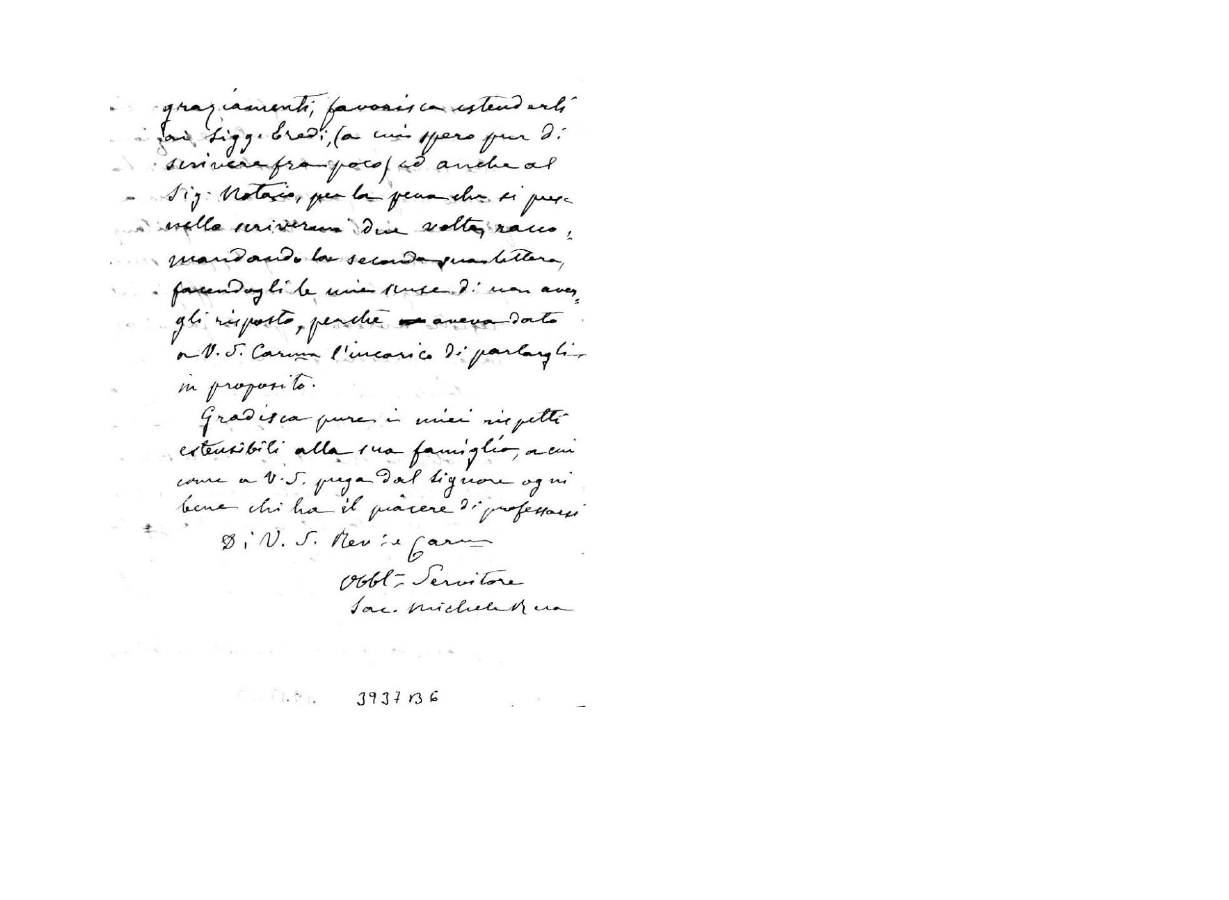 graziamenti, favorisca estenderli
ai Sigg. Eredi, (a cui spero pur di
scrivere fra poco) ed anche al
Sig. Notaio, per la pena che si prese
nello scrivermi due volte, racco,
mandando la seconda sua lettera,
facendogli le mie scuse di non aver,
gli risposto, perchè aveva dato
a V. S. Carma l'incarico di parlargli
in proposito.
Gradisca pure i miei rispetti
estensibili alla sua famiglia, a cui
come a V. S. prega dal Signore ogni
bene chi ha il piacere di professarsi
Di V. S. Rev:a Carma
Obbl.mo Servitore
Sac. Michele Rua
3937 B 6